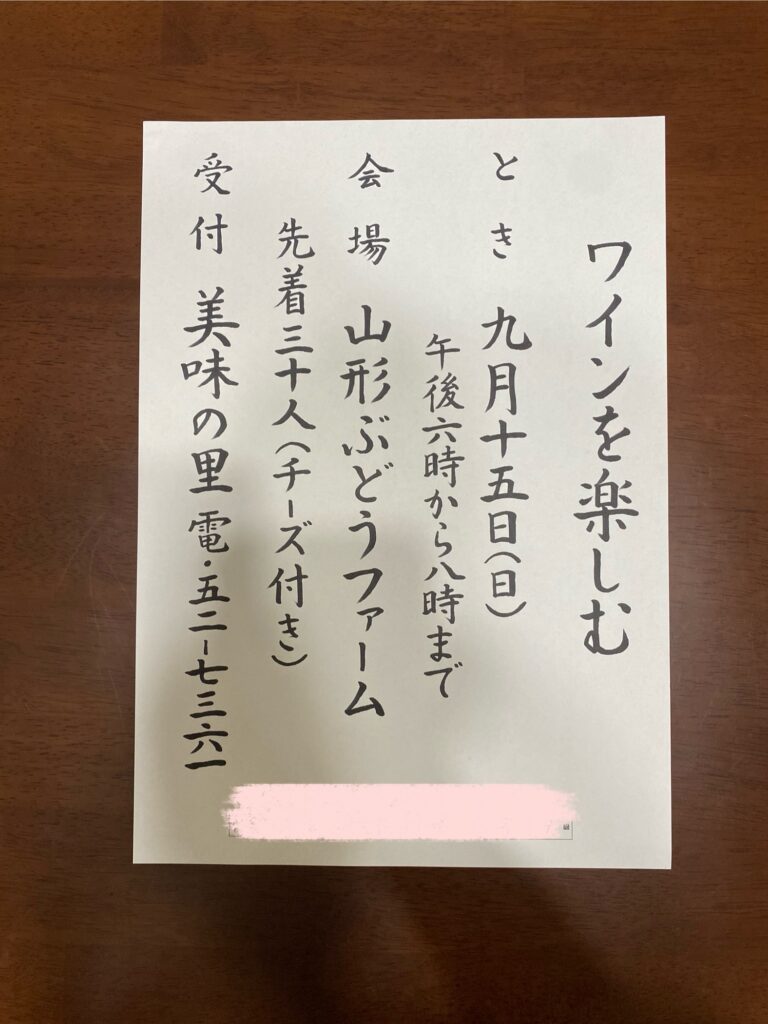 ワインを楽しむ
とき 九月十五日(日)
午後六時から八時まで
会場 山形ぶどうファーム
先着三十人(チーズ付き)
受付 美味の里 電・五二-七三六一